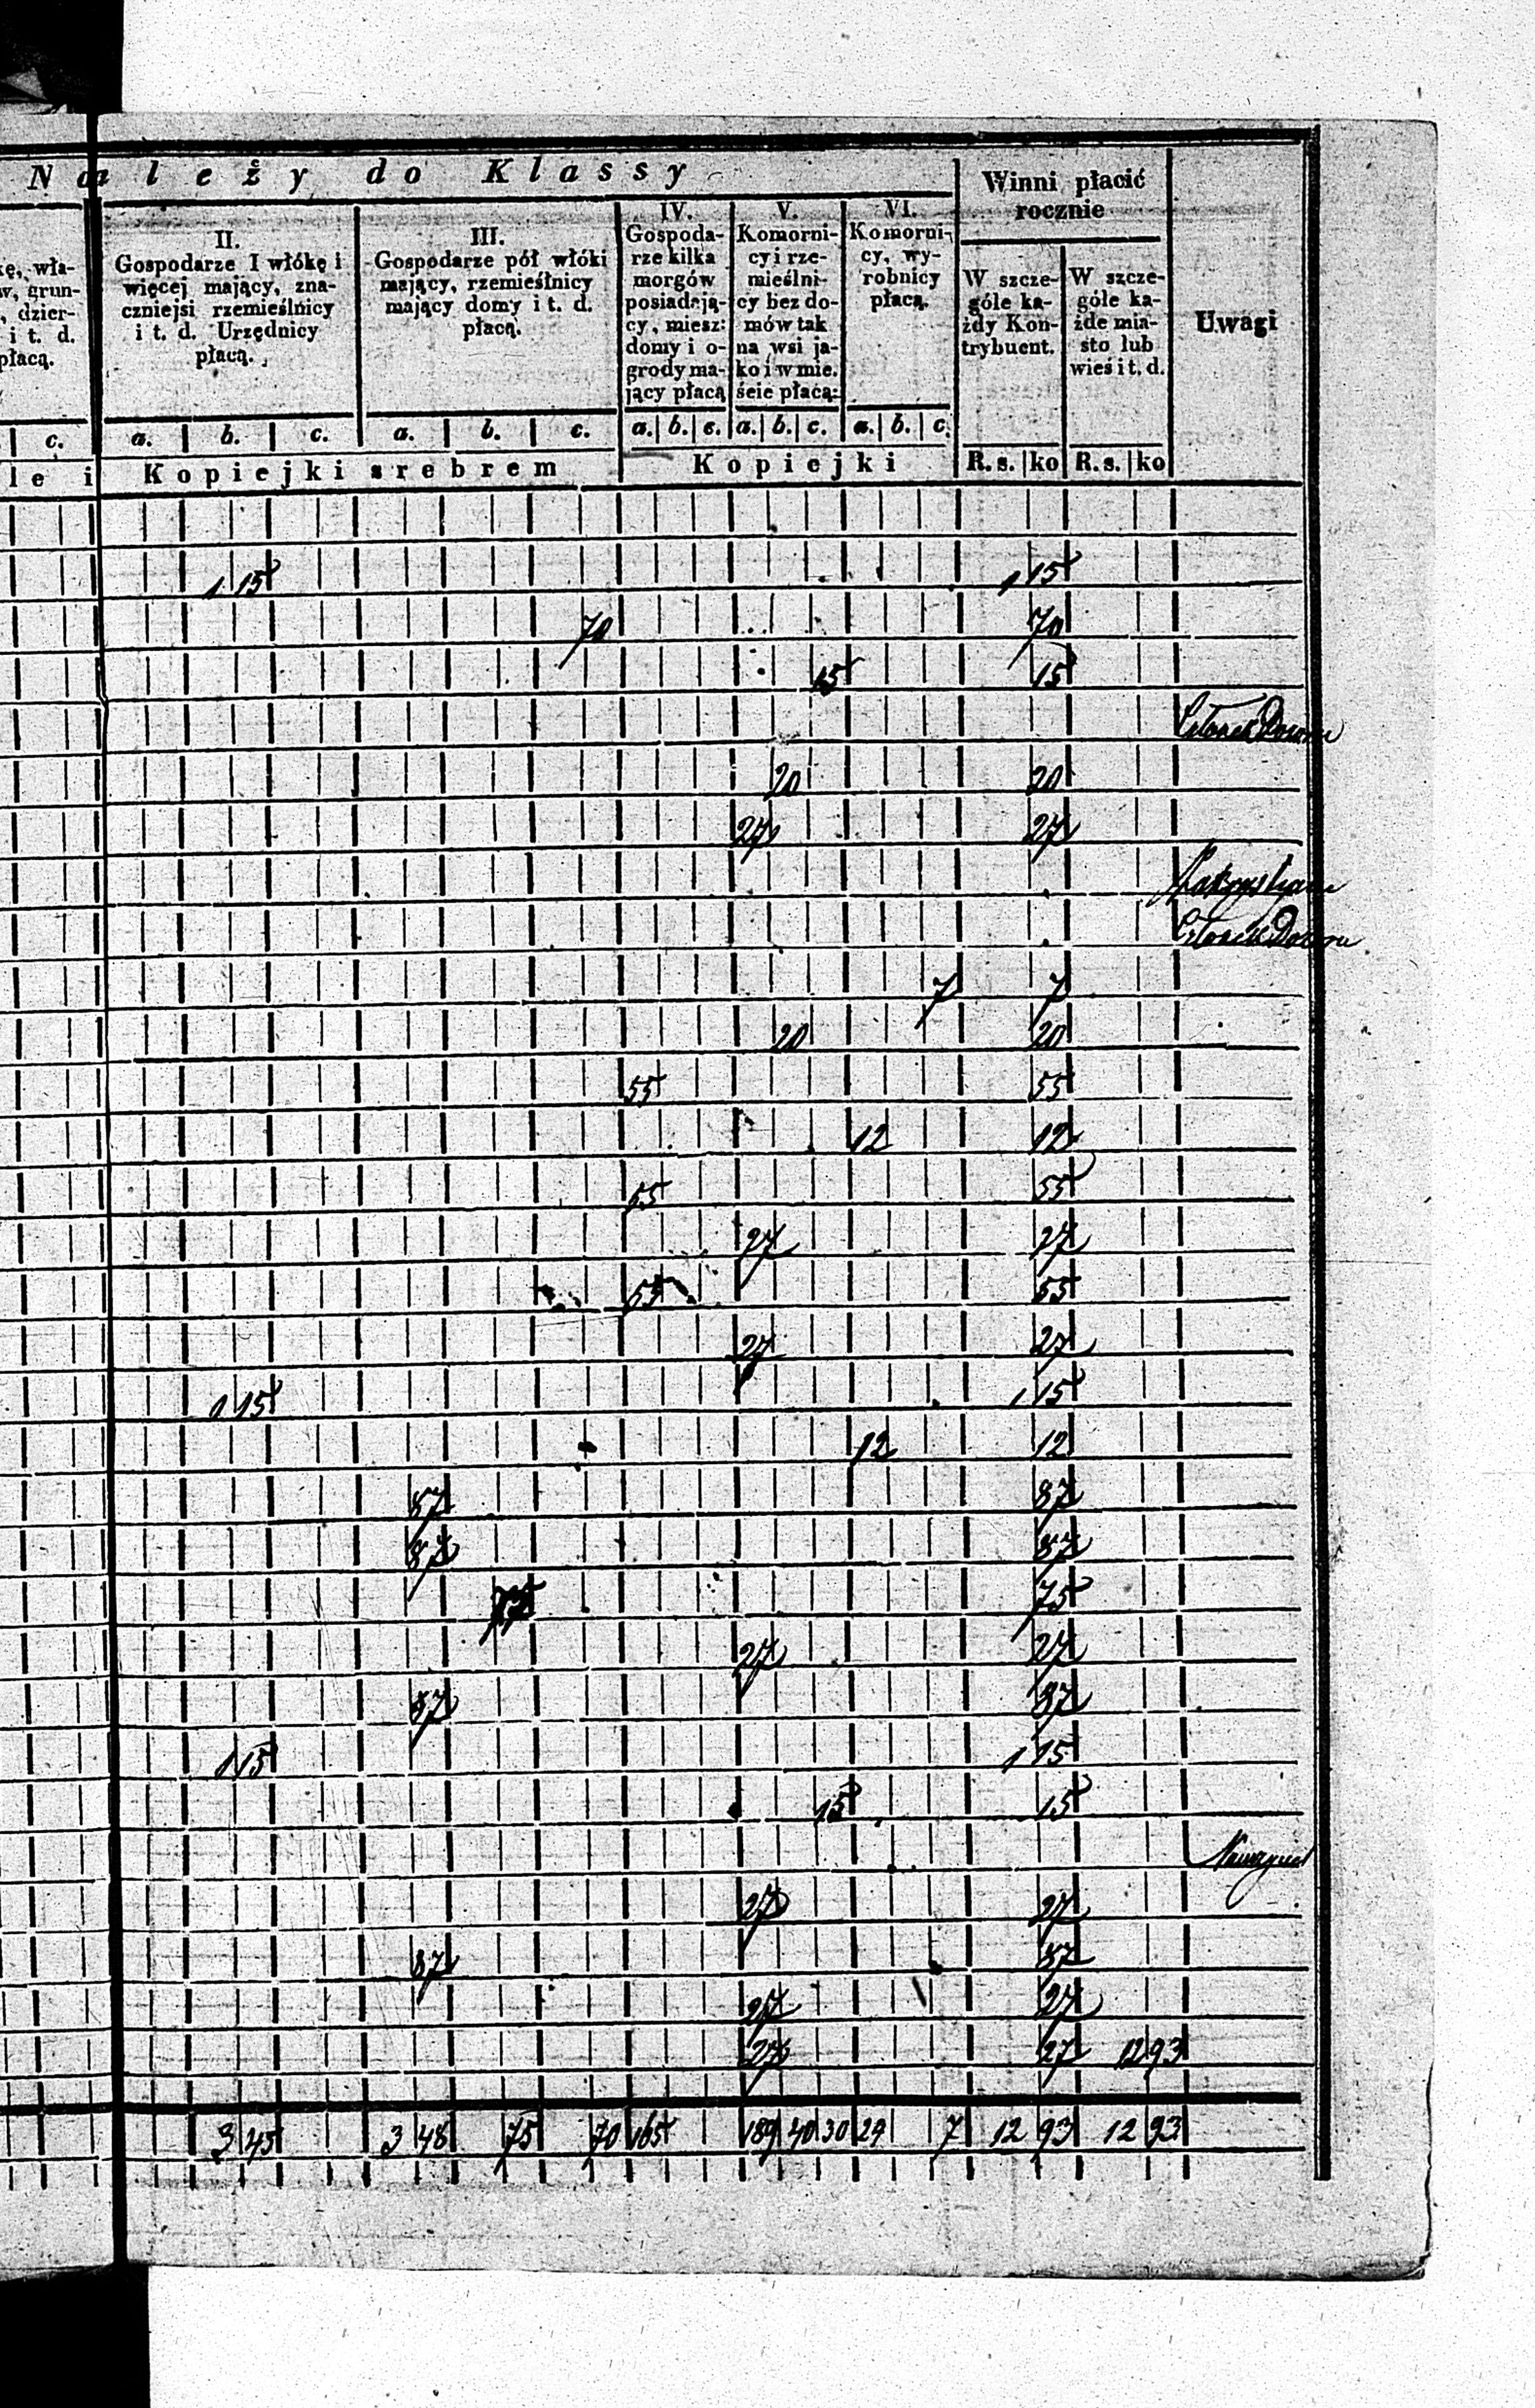 Należy do Klassy
Winni płacić
rocznie
Uwagi
kę, wła-
w, grun-
, dzier-
i t. d.
płacą.
II.
Gospodarze I włókę i
więcej mający, zna-
czniejsi rzemieślnicy
i t. d. Urzędnicy
płacą.
III.
Gospodarze pół włóki
mający, rzemieślnicy
mający domy i t. d.
płacą.
IV.
Gospoda-
rze kilka
morgów
posiadają-
cy, miesz:
domy i o-
grody ma-
jący płacą
V.
Komorni-
cy i rze-
mieślni-
cy bez do-
mów tak
na wsi ja-
ko i w mie.
ście płacą:
VI.
Komorni-
cy, wy-
robnicy
płacą.
W szcze-
góle ka-
żdy Kon-
trybuent.
W szcze-
góle ka-
żde mia-
sto lub
wieś i t. d.
c. a. b. c. a. b. c. a. b. c. a. b. c. a. b. c.
le i Kopiejki srebrem Kopiejki R. s. ko R. s. ko
1 15 1 15
70 70
15 15
Członek Dozoru
20 20
27 27
Członek Dozoru
7 7
20 20
55 55
12 12
55 55
27 27
55 55
27 27
1 15 1 15
12 12
87 87
87 87
75 75
27 27
87 87
1 15 1 15
15 15
Nauczyciel
27 27
87 87
27 27
27 27 12 93
3 45 3 48 75 70 165 189 40 30 24 7 12 93 12 93